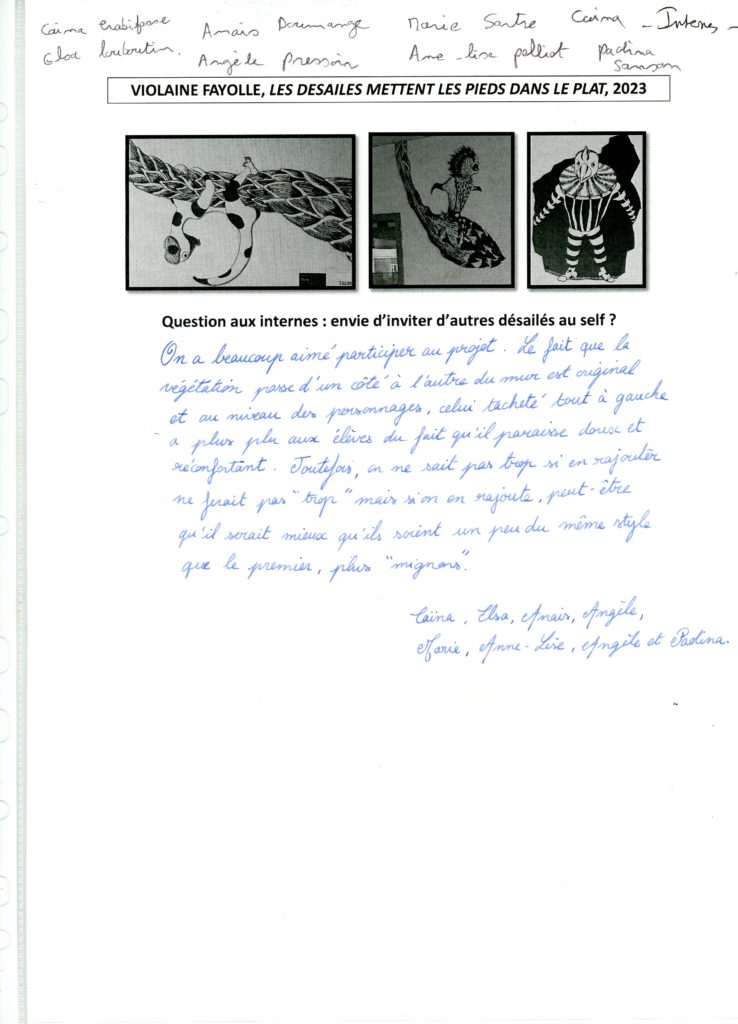 Caïna Anaïs Doumange Marie Sartre Caïna - Internes -
Elsa Louboutin. Angèle Pressoin Anne-lise pelliot Paolina
Samson
VIOLAINE FAYOLLE, LES DESAILES METTENT LES PIEDS DANS LE PLAT, 2023
Question aux internes : envie d'inviter d'autres désailés au self ?
On a beaucoup aimé participer au projet. Le fait que la
végétation passe d'un côté à l'autre du mur est original
et au niveau des personnages, celui tacheté tout à gauche
a plus plu aux élèves du fait qu'il paraisse doux et
réconfortant. Toutefois, on ne sait pas trop si en rajouter
ne ferait pas "trop" mais si on en rajoute, peut-être
qu'il serait mieux qu'ils soient un peu du même style
que le premier, plus "mignons".
Caïna, Elsa, Anaïs, Angèle,
Marie, Anne-Lise, Angèle et Paolina.